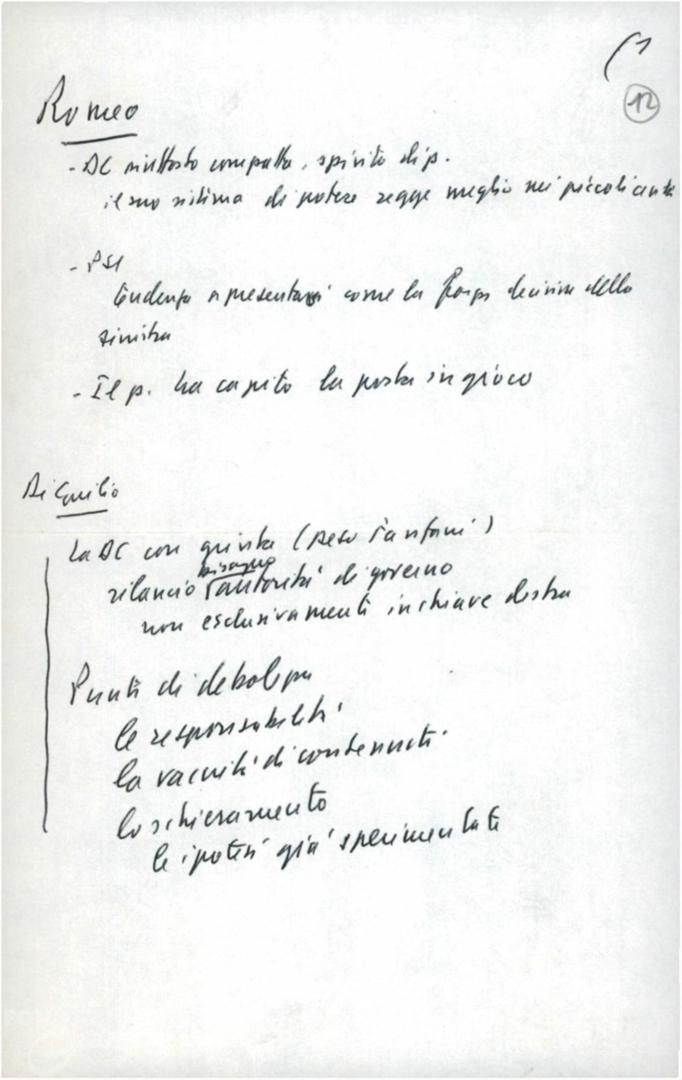 12
Romeo
- DC piuttosto compatta, spirito di p.
il suo sistema di potere regge meglio nei piccoli
- PSI
tendenza a presentarsi come la forza decisiva della
sinistra
- Il p. ha capito la posta in gioco
La DC con grinta (peso Fanfani)
bisogno
rilancio autorità di governo
non esclusivamente in chiave destra
Punti di debolezza
le responsabilità
la vacuità di contenuti
lo schieramento
le ipotesi già sperimentate